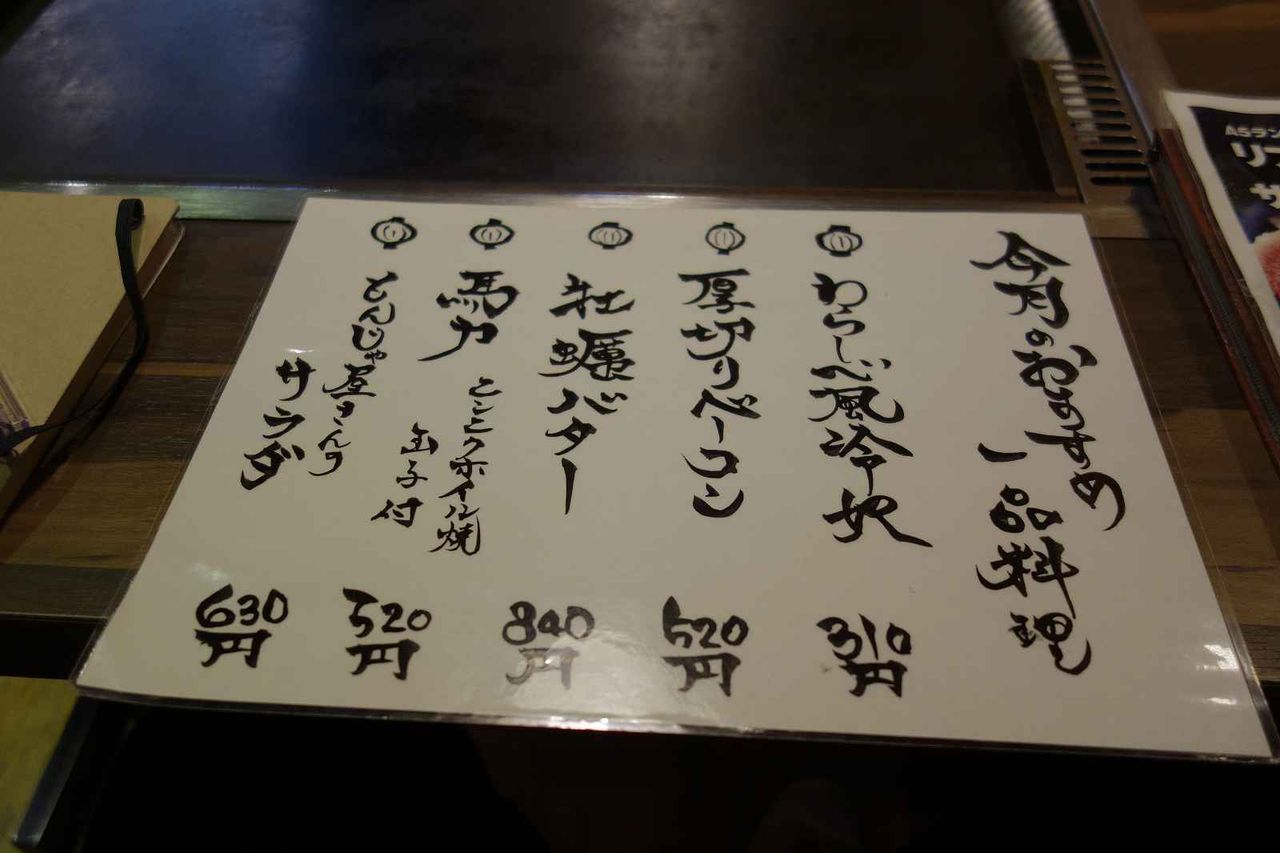 今月のおすすめ
一品料理
わらしべ風冷奴
310円
厚切りベーコン
520円
牡蠣バター
840円
馬力
ニンニクホイル焼
玉子付
520円
とんじゃ屋さんの
サラダ
630円